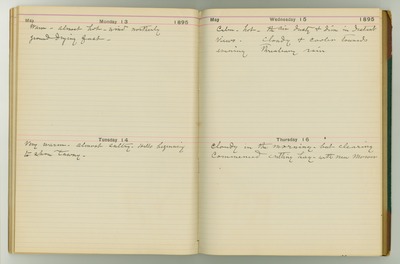 May Monday 13 1895
Warm - almost hot - wind westerly
ground drying fast -
Tuesday 14
Very warm - almost sultry. Hills beginning
to show Tawny -
May Wednesday 15 1895
Calm - hot - the air dusty & dim in distant
views. Cloudy & cooler towards
evening Threatening rain
Thursday 16
Cloudy in the morning - but clearing
Commenced cutting hay - with new Mower